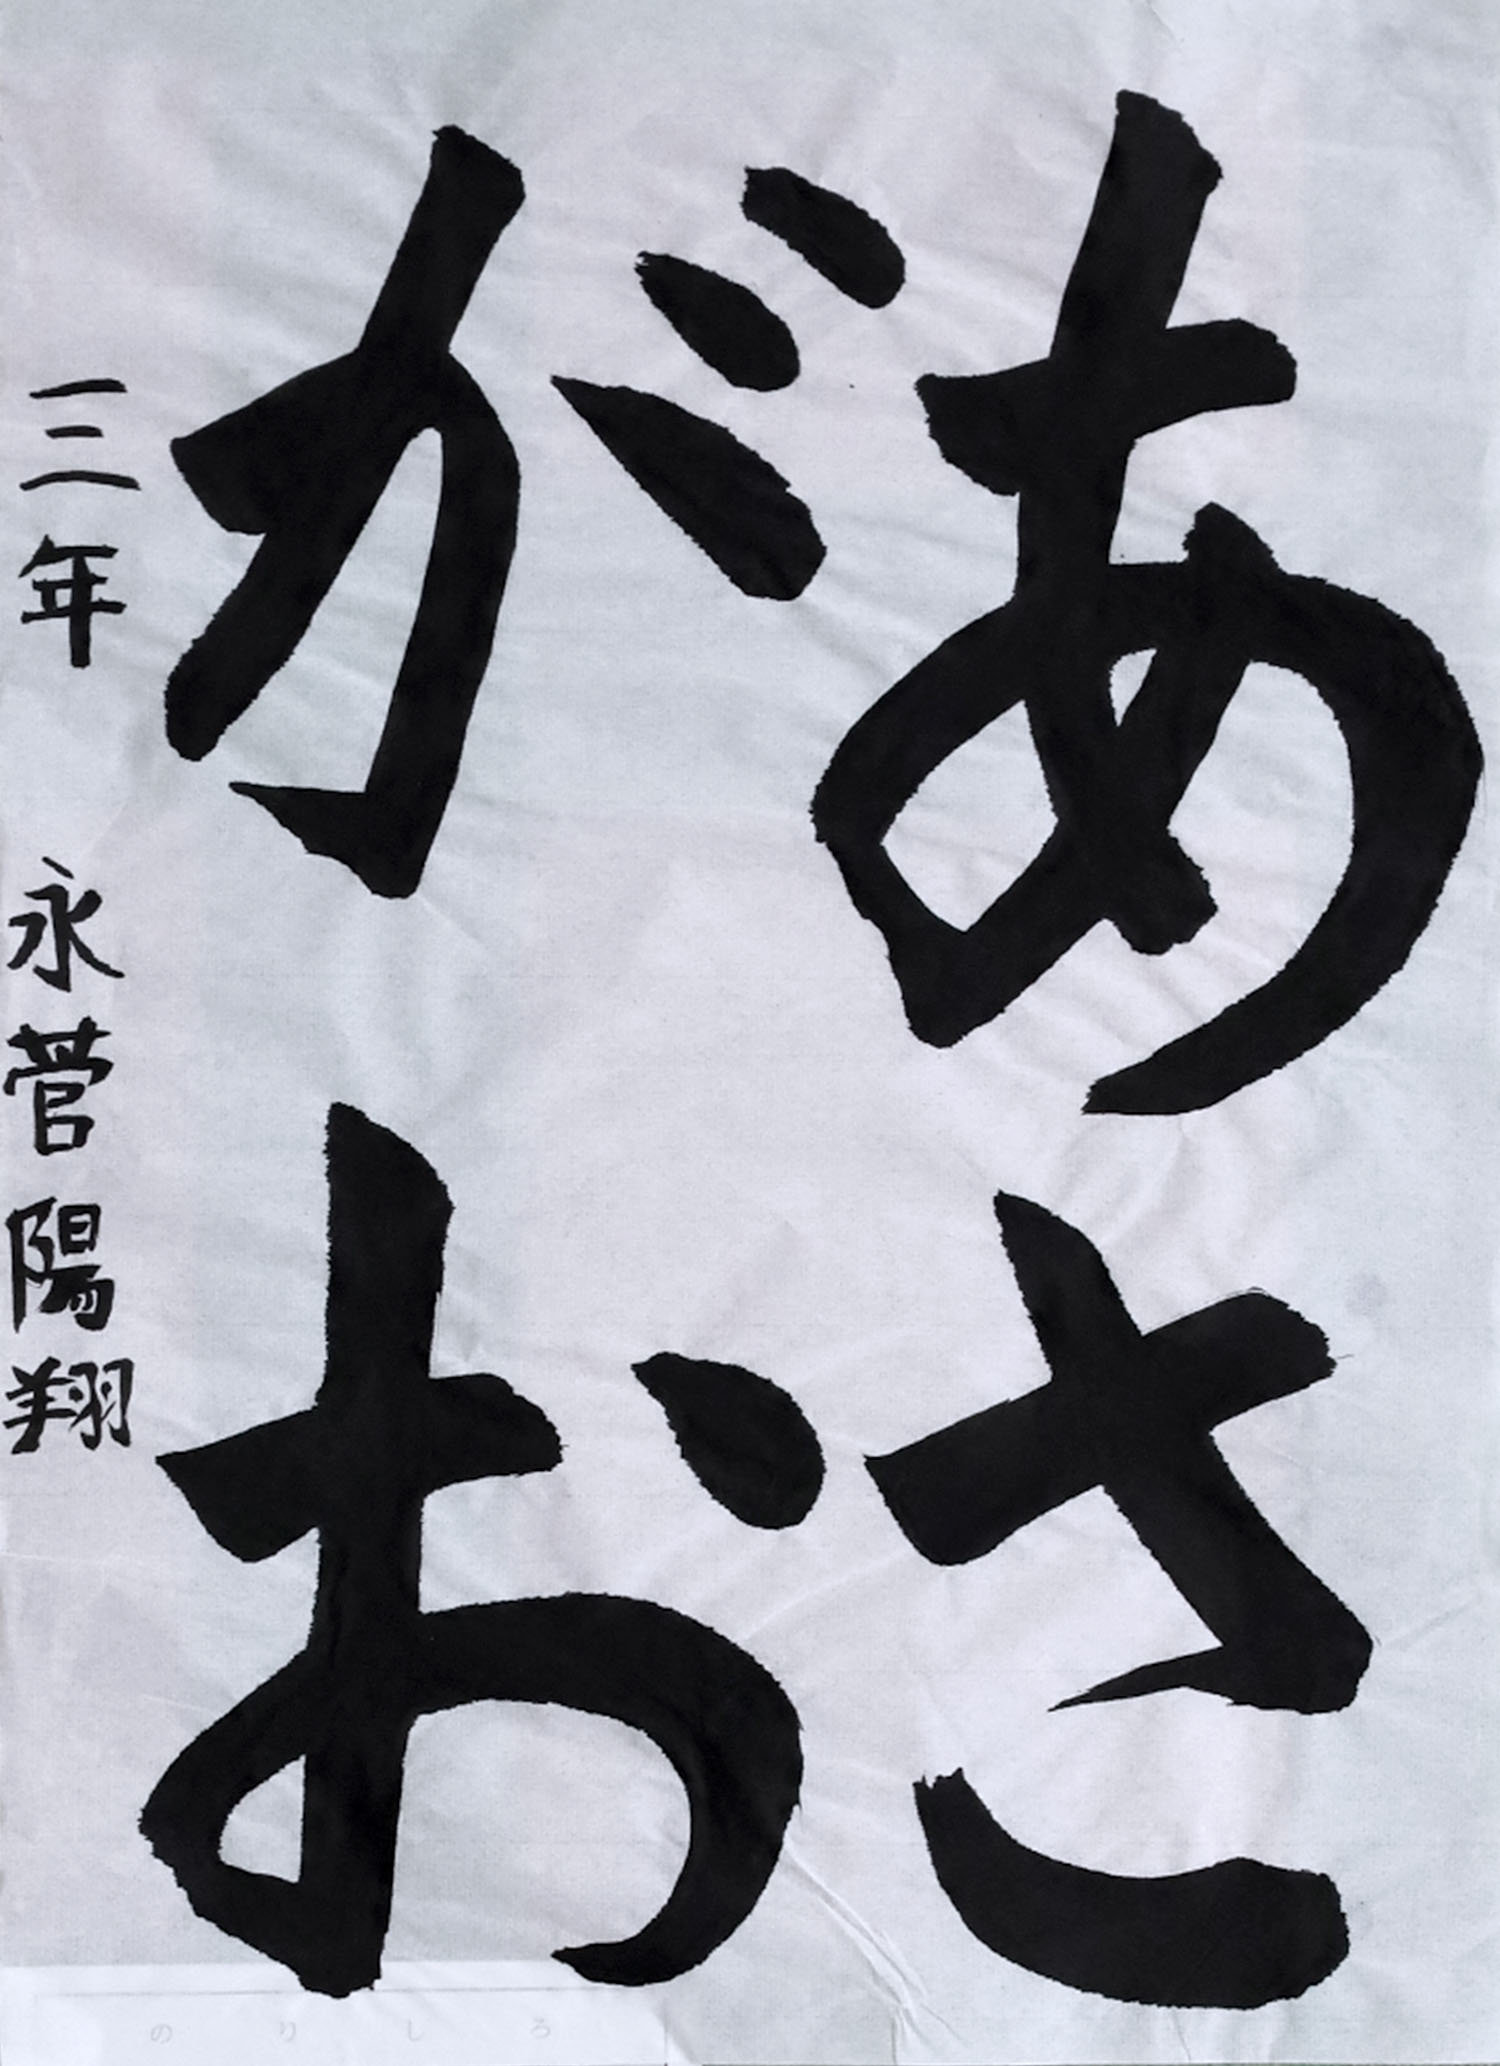 あさ
がお
三年 永菅陽翔
のりしろ